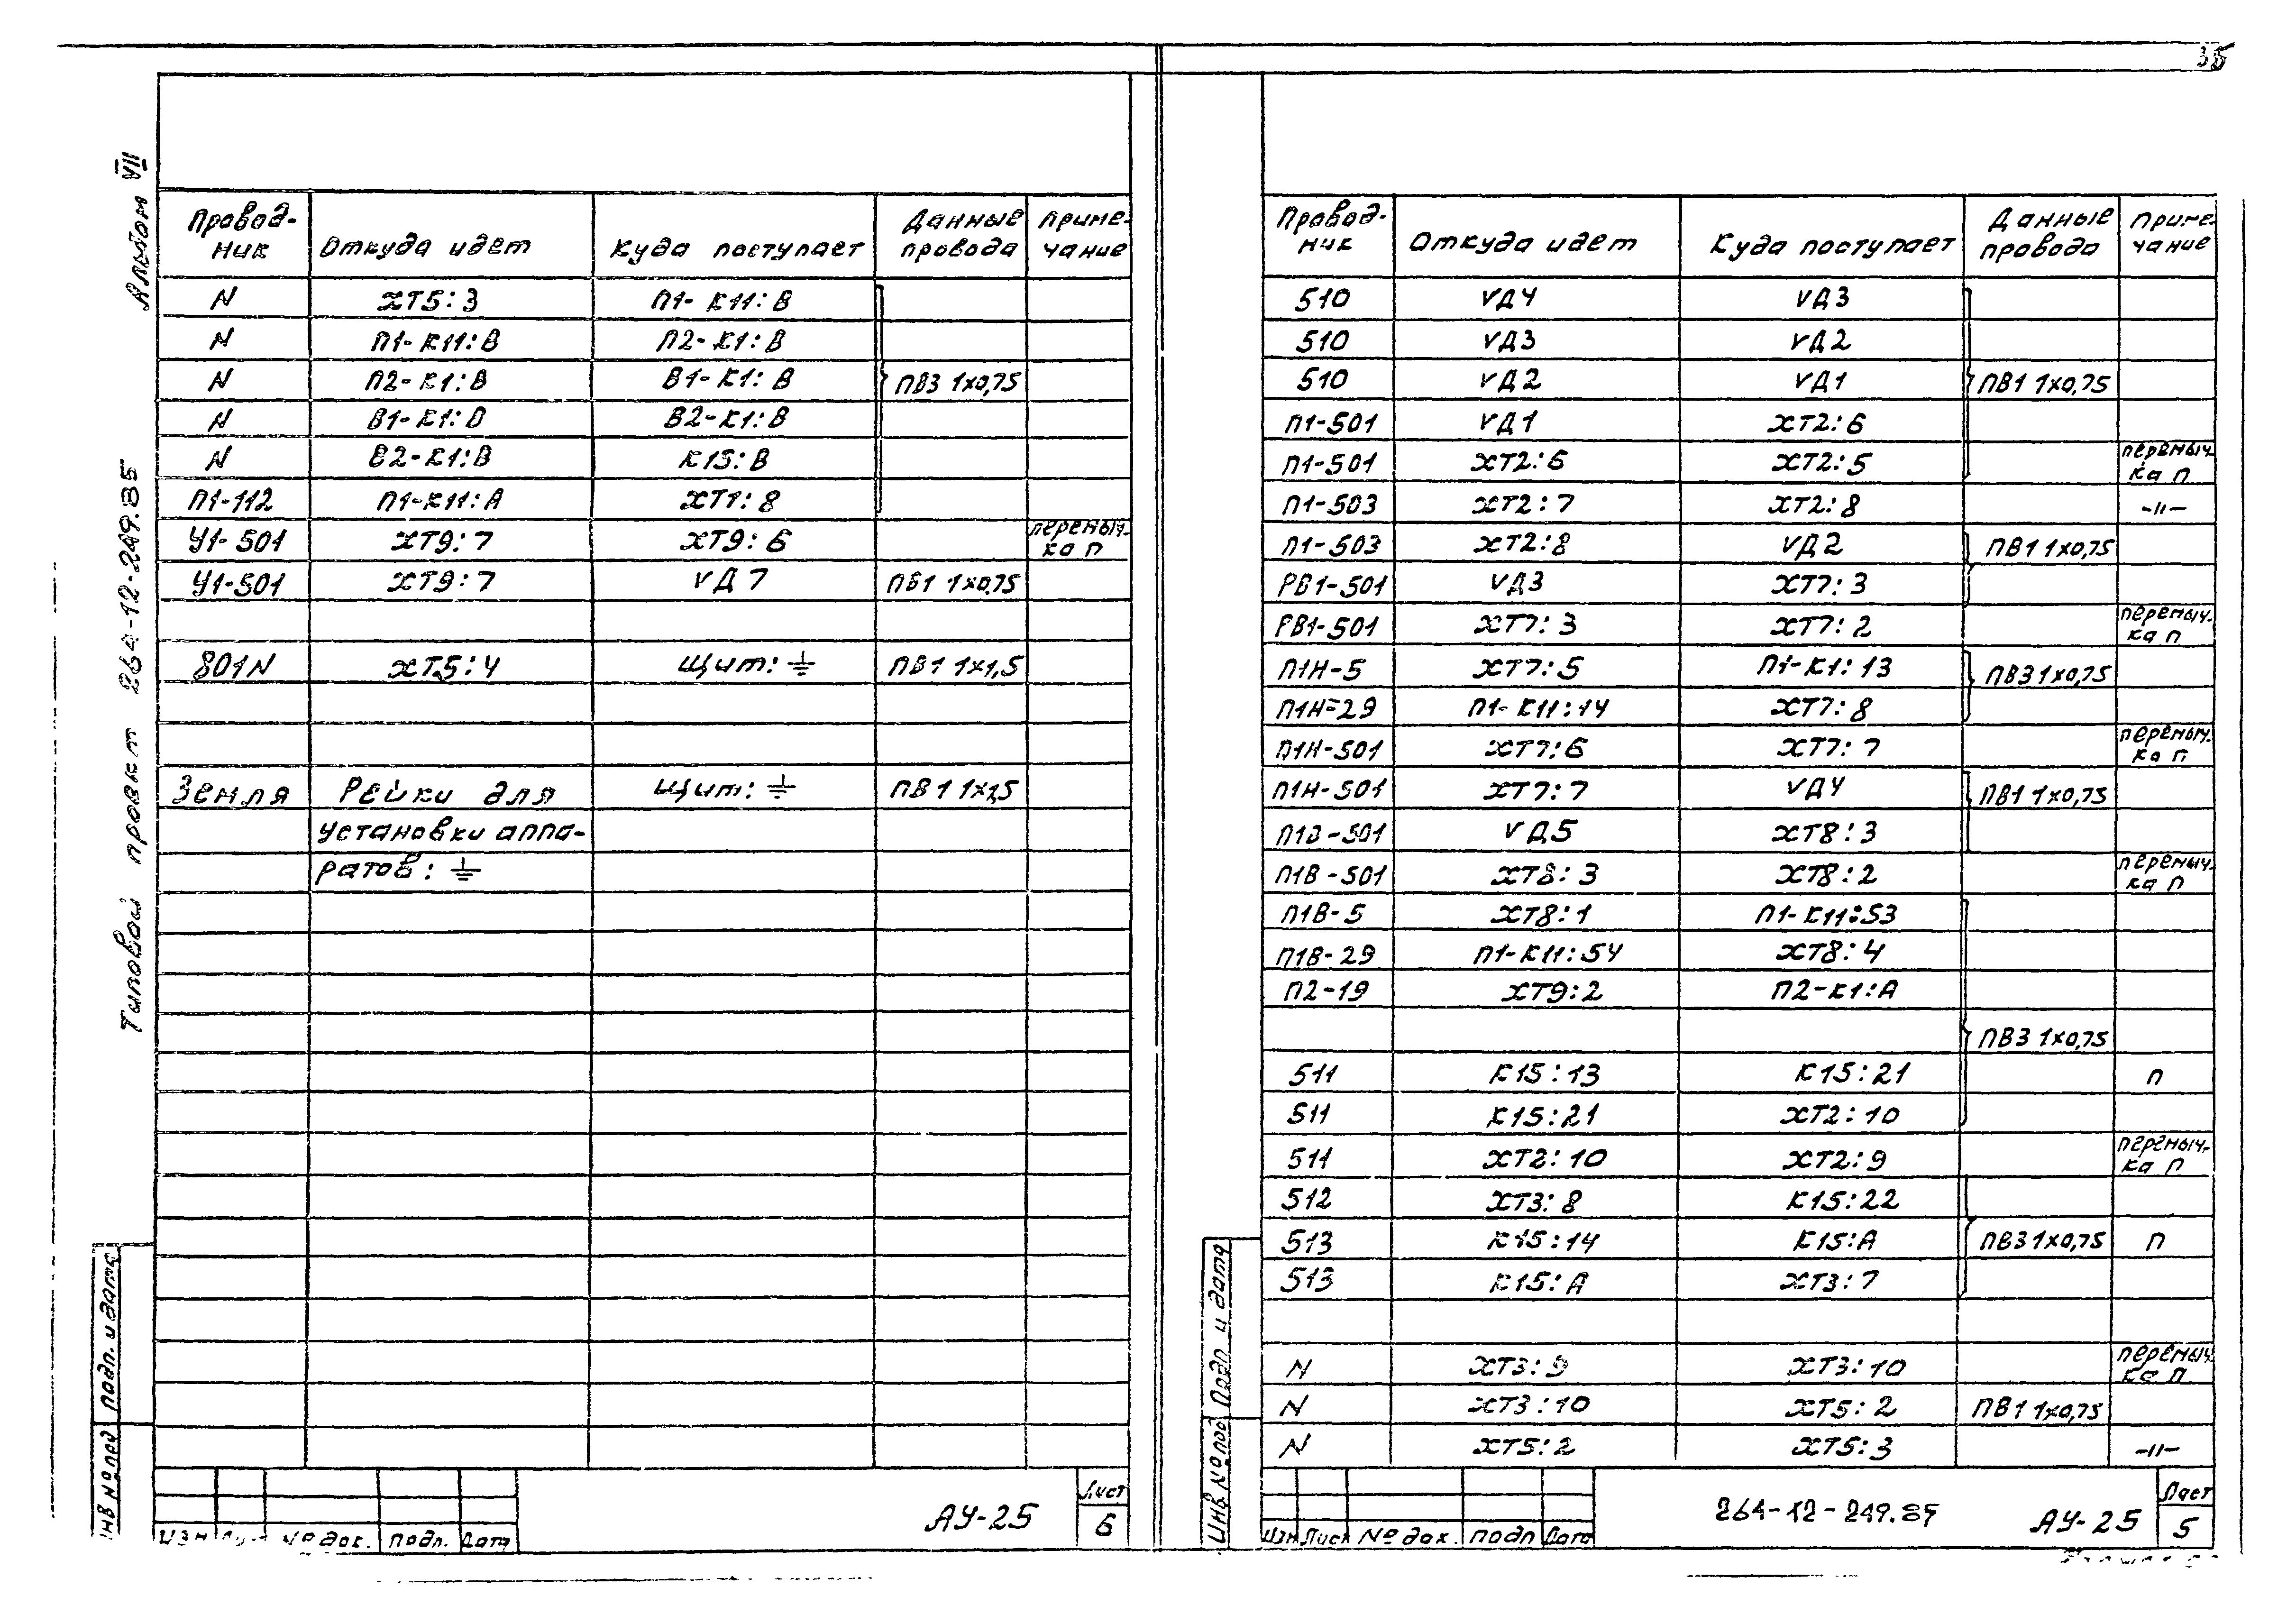 35
Альбом VII
Типовой проект 264-12-249.85
Провод-ник | Откуда идет | Куда поступает | Данные провода | Приме-чание
N | ХТ5:3 | П1-К11:В
N | П1-К11:В | П2-К1:В
N | П2-К1:В | В1-К1:В | ПВ3 1х0,75
N | В1-К1:В | В2-К1:В
N | В2-К1:В | К15:В
П1-112 | П1-К11:А | ХТ1:8
У1-501 | ХТ9:7 | ХТ9:6 | перемыч-ка П
У1-501 | ХТ9:7 | VД7 | ПВ1 1х0,75
801N | ХТ5:4 | Щит: ⏚ | ПВ1 1х1,5
Земля | Рейки для | Щит: ⏚ | ПВ1 1х1,5
установки аппа-
ратов: ⏚
Изм Лист № док. Подп. Дата
АУ-25
Лист
6
Подп. и дата
Инв № подл
Провод-ник | Откуда идет | Куда поступает | Данные провода | Приме-чание
510 | VД4 | VД3
510 | VД3 | VД2
510 | VД2 | VД1 | ПВ1 1х0,75
П1-501 | VД1 | ХТ2:6
П1-501 | ХТ2:6 | ХТ2:5 | перемыч-ка П
П1-503 | ХТ2:7 | ХТ2:8 | -"-
П1-503 | ХТ2:8 | VД2 | ПВ1 1х0,75
РВ1-501 | VД3 | ХТ7:3
РВ1-501 | ХТ7:3 | ХТ7:2 | перемыч-ка П
П1Н-5 | ХТ7:5 | П1-К1:13 | ПВ3 1х0,75
П1Н-29 | П1-К11:14 | ХТ7:8
П1Н-501 | ХТ7:6 | ХТ7:7 | перемыч-ка П
П1Н-501 | ХТ7:7 | VД4 | ПВ1 1х0,75
П1В-501 | VД5 | ХТ8:3
П1В-501 | ХТ8:3 | ХТ8:2 | перемыч-ка П
П1В-5 | ХТ8:1 | П1-К11:53
П1В-29 | П1-К11:54 | ХТ8:4
П2-19 | ХТ9:2 | П2-К1:А
ПВ3 1х0,75
511 | К15:13 | К15:21 | П
511 | К15:21 | ХТ2:10
511 | ХТ2:10 | ХТ2:9 | перемыч-ка П
512 | ХТ3:8 | К15:22
513 | К15:14 | К15:А | ПВ3 1х0,75 | П
513 | К15:А | ХТ3:7
N | ХТ3:9 | ХТ3:10 | перемыч-ка П
N | ХТ3:10 | ХТ5:2 | ПВ1 1х0,75
N | ХТ5:2 | ХТ5:3 | -"-
Изм Лист № док. Подп Дата
264-12-249.85
АУ-25
Лист
5
Подп и дата
Инв № подл